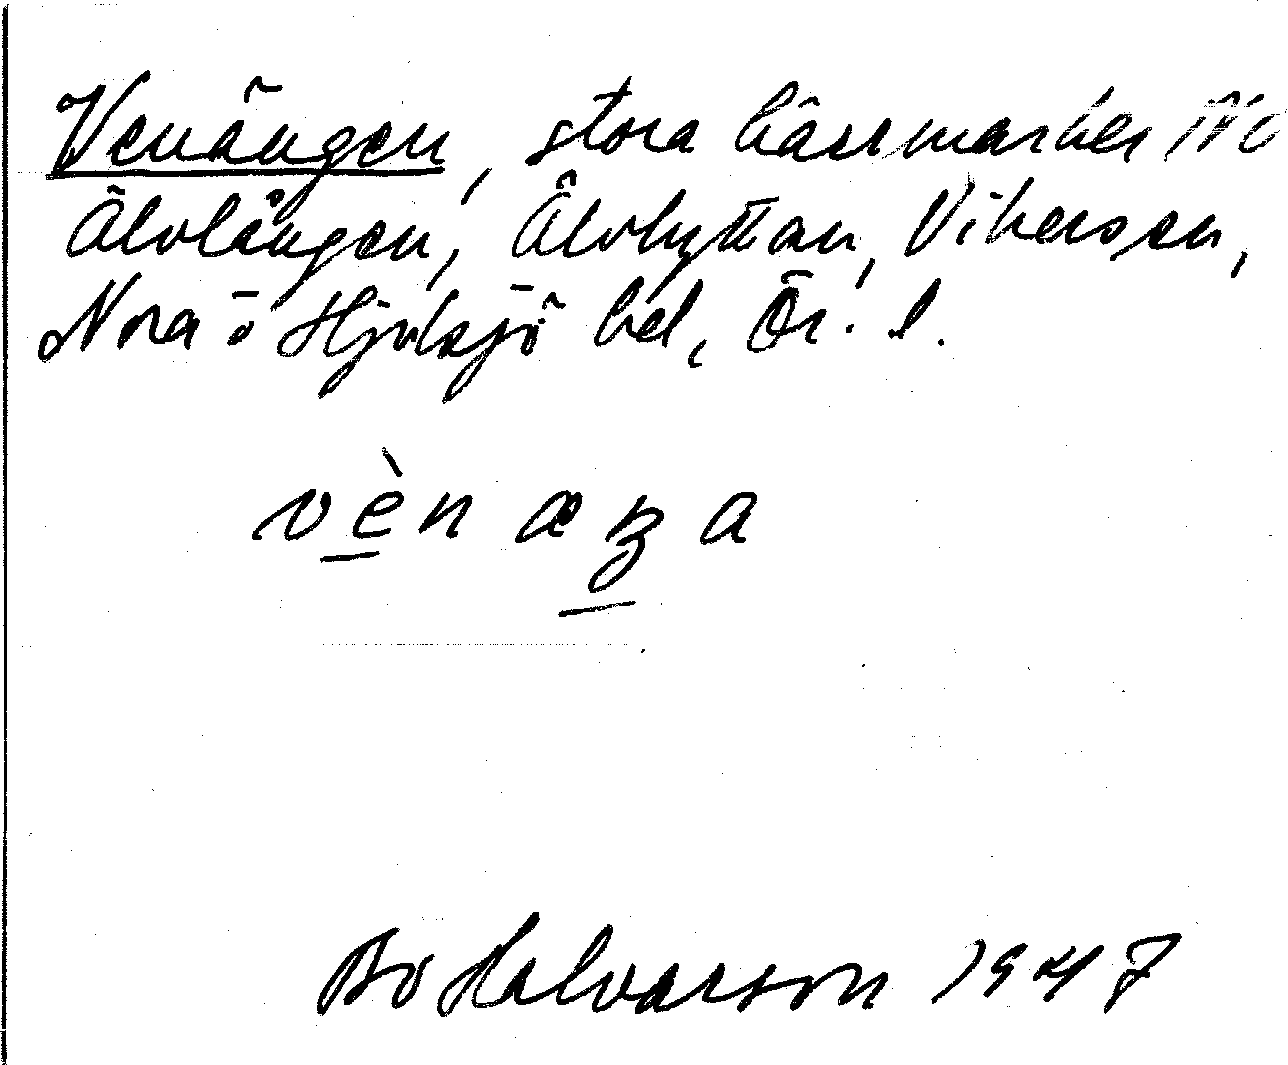 Venängen, stora kärrmarker NO
Älvlången, Älvhyttan, Vikersen,
Nora o Hjulsjö bel, Ör. l.
vèn æŋa
Bo Halvarson 1947